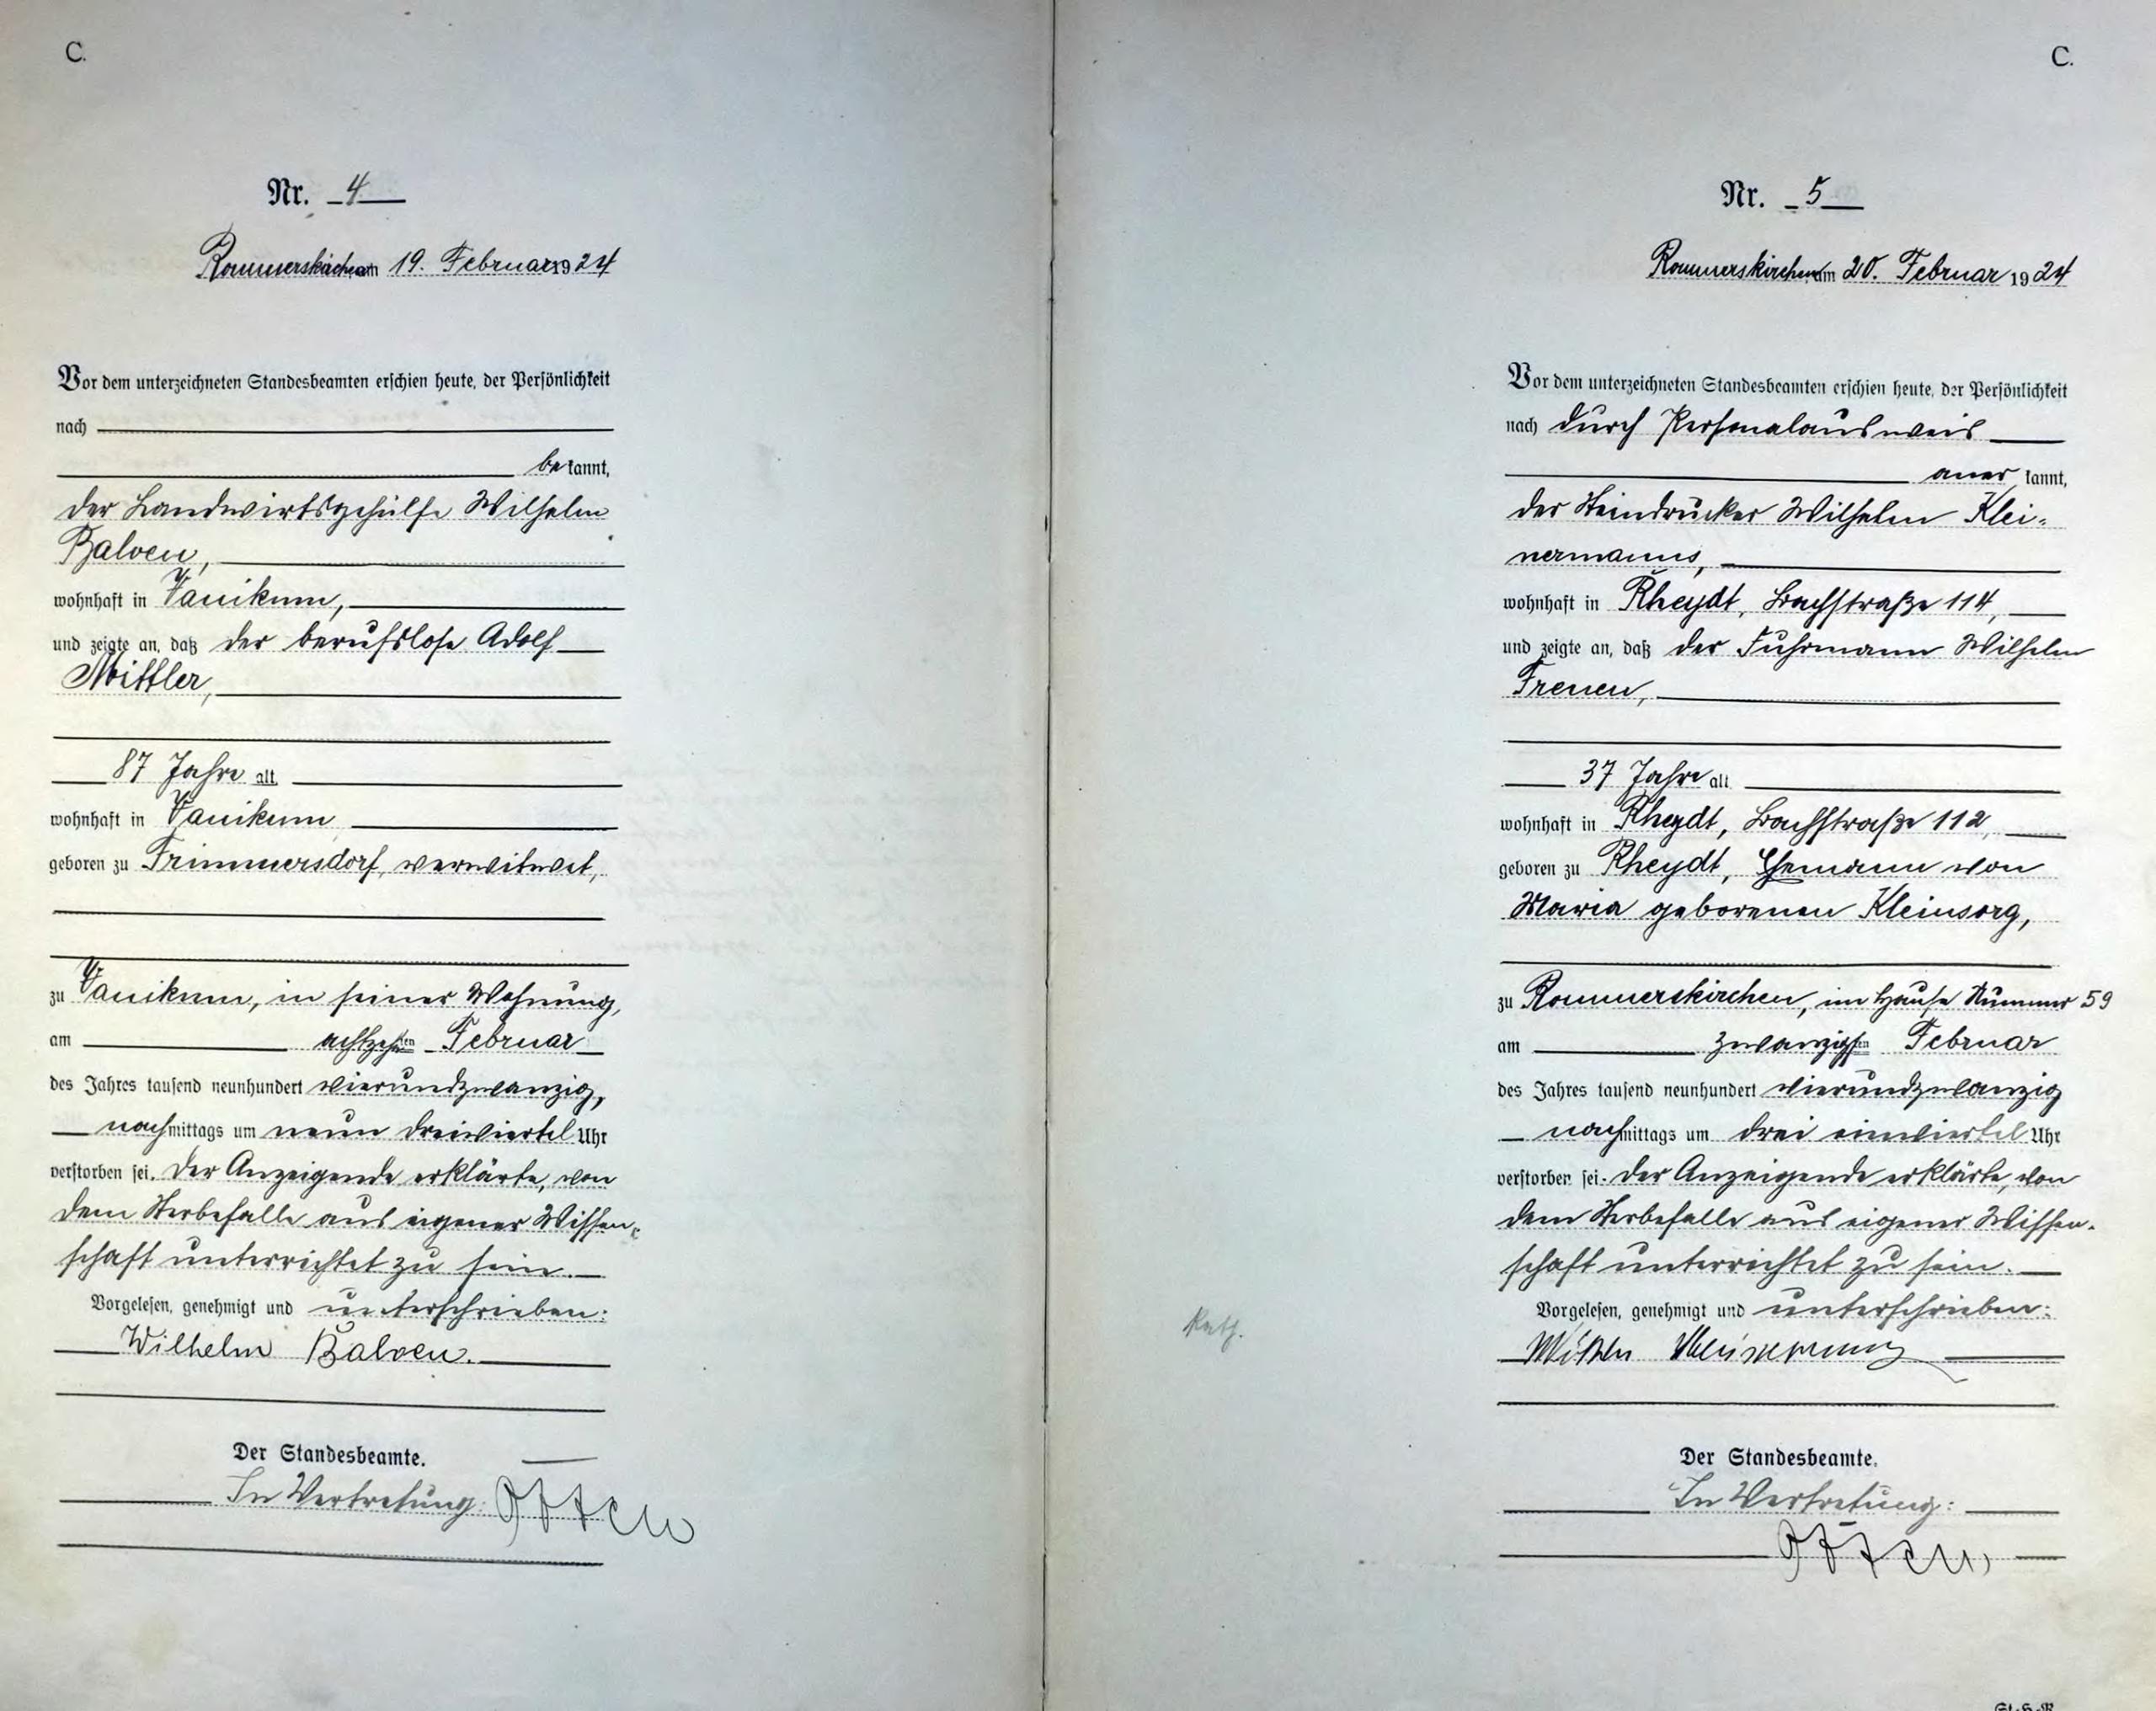 C.
Nr. 4
Rommerskirchen am 19. Februar 1924
Vor dem unterzeichneten Standesbeamten erschien heute, der Persönlichkeit
nach
be kannt,
der Landwirtsgehülfe Wilhelm
Balven,
wohnhaft in Vanikum,
und zeigte an, daß der berufslose Adolf
Mittler,
87 Jahre alt
wohnhaft in Vanikum
geboren zu Frimmersdorf, verwitwet,
zu Vanikum, in seiner Wohnung,
am achtzehnten Februar
des Jahres tausend neunhundert vierundzwanzig,
nachmittags um neun dreiviertel Uhr
verstorben sei. Der Anzeigende erklärte, von
dem Sterbefalle aus eigener Wissen-
schaft unterrichtet zu sein.
Vorgelesen, genehmigt und unterschrieben:
Wilhelm Balven.
Der Standesbeamte.
In Vertretung: Otten
C.
Nr. 5
Rommerskirchen, am 20. Februar 1924
Vor dem unterzeichneten Standesbeamten erschien heute, der Persönlichkeit
nach durch Personalausweis
aner kannt,
der Steindrucker Wilhelm Klei-
nermanns,
wohnhaft in Rheydt, Bachstraße 114,
und zeigte an, daß der Fuhrmann Wilhelm
Frenen,
37 Jahre alt
wohnhaft in Rheydt, Bachstraße 112,
geboren zu Rheydt, Ehemann von
Maria geborenen Kleinsorg,
zu Rommerskirchen, im Hause Nummer 59
am zwanzigsten Februar
des Jahres tausend neunhundert vierundzwanzig
nachmittags um drei einviertel Uhr
verstorben sei. Der Anzeigende erklärte, von
dem Sterbefalle aus eigener Wissen-
schaft unterrichtet zu sein.
Kath.
Vorgelesen, genehmigt und unterschrieben:
Der Standesbeamte.
In Vertretung:
Otten